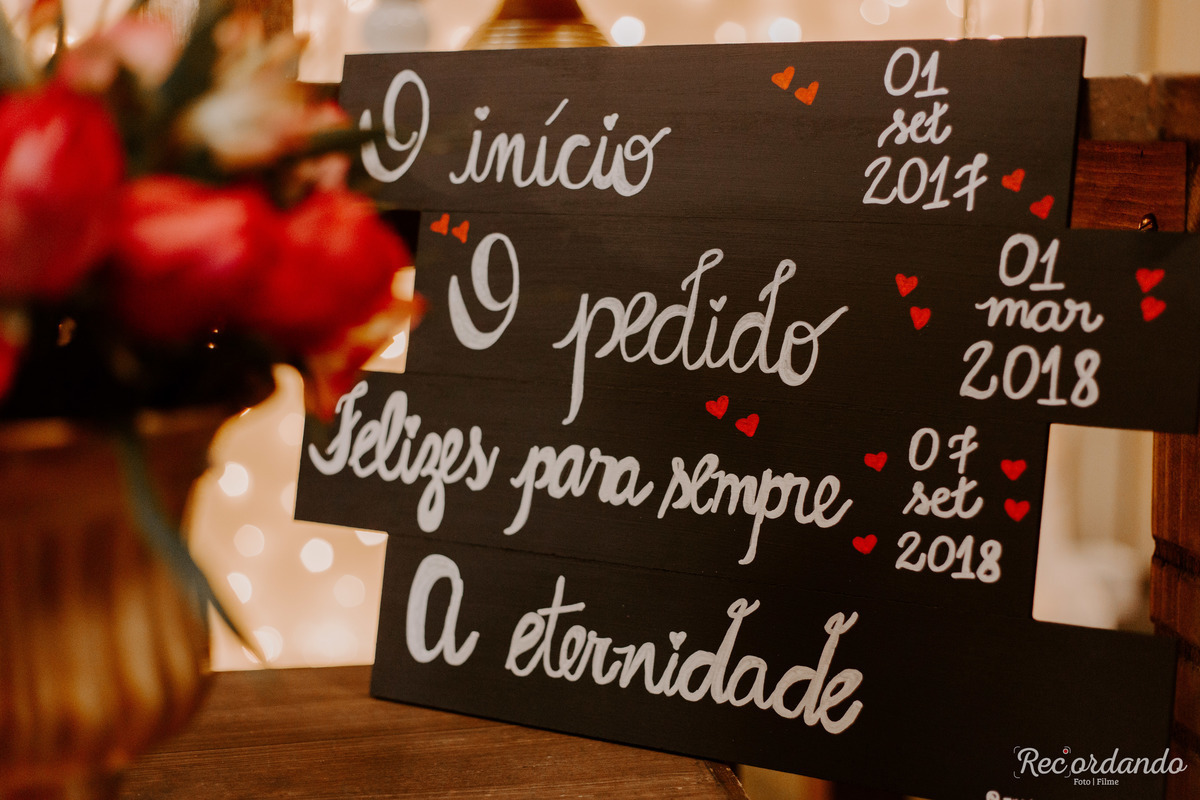 O início
01
set
2017
O pedido
01
mar
2018
Felizes para sempre
07
set
2018
A eternidade
Recordando
Foto | Filme